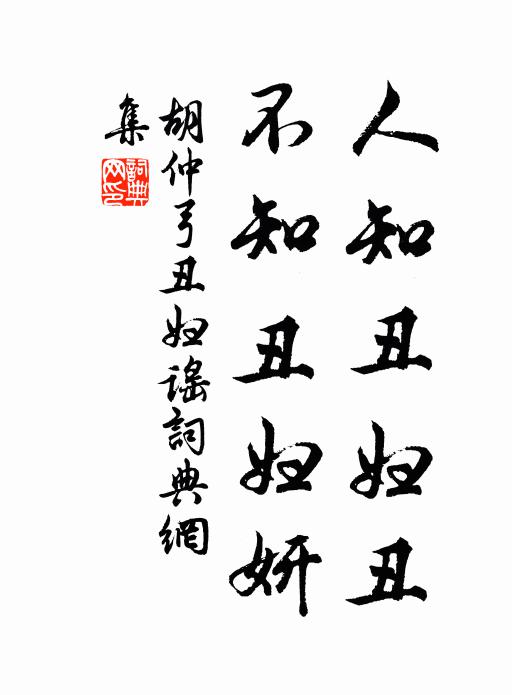 人知丑妇丑
不知丑妇妍
胡仲弓丑妇謠詞典網
集
詞典网印